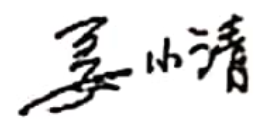 姜小清